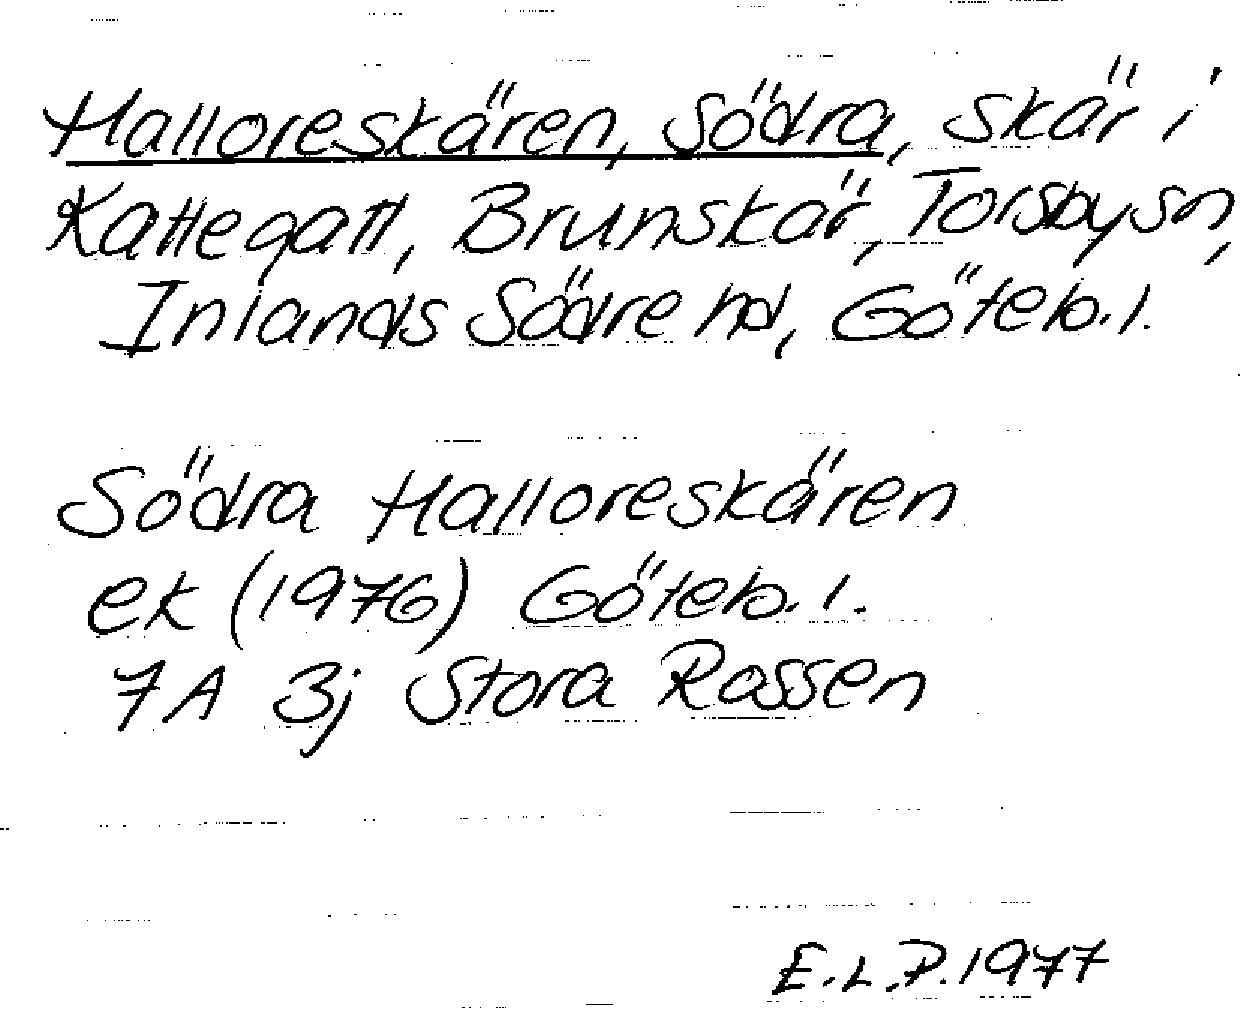 Halloreskären, Södra, skär i
Kattegatt, Brunskär, Torsby sn,
Inlands Södre hd, Göteb. l.
Södra Halloreskären
ek (1976) Göteb. l.
7A 3j Stora Rossen
E.L.P. 1977